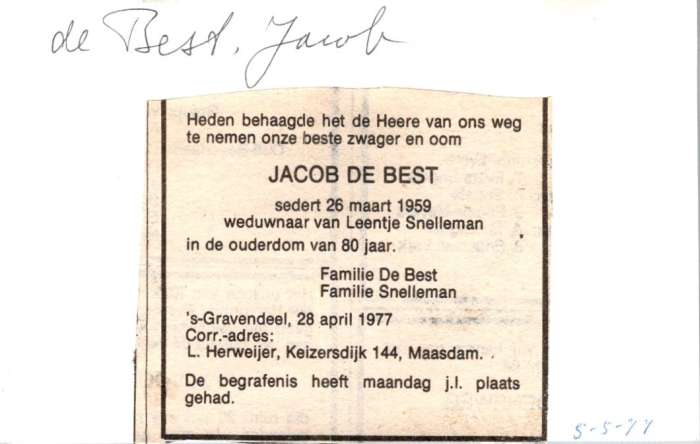 de Best, Jacob
Heden behaagde het de Heere van ons weg
te nemen onze beste zwager en oom
JACOB DE BEST
sedert 26 maart 1959
weduwnaar van Leentje Snelleman
in de ouderdom van 80 jaar.
Familie De Best
Familie Snelleman
's-Gravendeel, 28 april 1977
Corr.-adres:
L. Herweijer, Keizersdijk 144, Maasdam.
De begrafenis heeft maandag j.l. plaats
gehad.
5-5-77